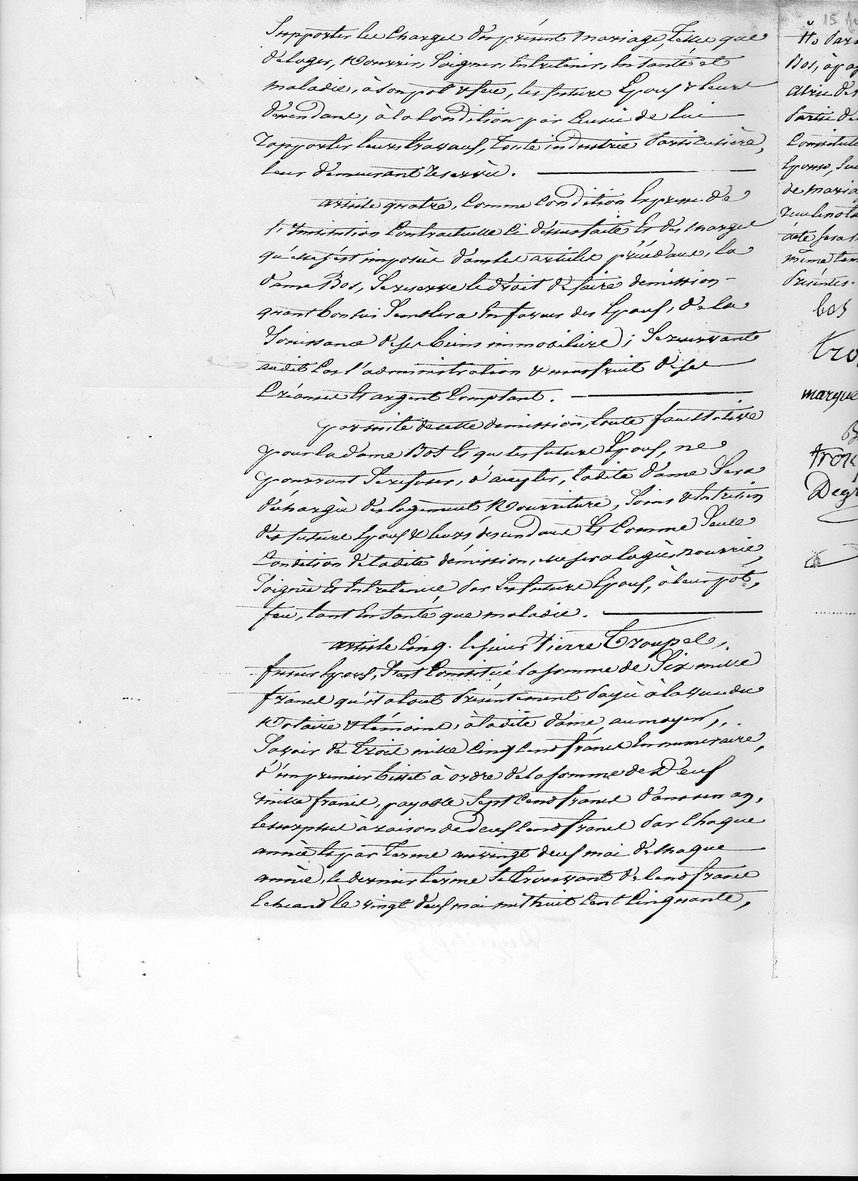 Supporter les charges du présent mariage, telles que
de loger, nourrir, soigner, entretenir, en santé et
maladie, à son pot & feu, les futurs époux & leurs
descendants, à la condition par ceux-ci de lui
rapporter leurs travaux, toute industrie particulière,
leur demeurant réservée.
article quatre. Comme condition expresse de
l'institution contractuelle ci dessus faite et des charges
qu'elle s'est imposée dans les articles précédents, la
dame Bos, se réserve le droit de faire démission
quand bon lui semblera en faveur des époux, de la
jouissance de ses biens immobiliers; se réservant
audit cas l'administration & usufruit de ses
créances et argent comptant.
par suite de cette démission, toute facultative
pour la dame Bos et que les futurs époux, ne
pourront se refuser, d'accepter, ladite dame sera
déchargée des logement nourriture, soins & entretien
des futurs époux & leurs descendants et comme seule
condition de ladite démission, elle sera logée, nourrie,
soignée et entretenue par les futurs époux, à leur pot,
feu, tant en santé que maladie.
article cinq. le sieur Pierre Troupel,
futur époux, s'est constitué la somme de six mille
francs qu'il a tout présentement payée à la vue du
notaire & témoins, à ladite dame, au moyen,
savoir de trois mille cinq cents francs en numéraire,
d'un premier billet à ordre de la somme de deux
mille francs, payable sept cents francs dans un an,
le surplus à raison de deux cents francs par chaque
année et par terme au vingt deux mai de chaque
année, le dernier terme se trouvant de cent francs
échéant le vingt deux mai mil huit cent cinquante,
15
Bos, à
partie de
époux,
de maria
même tem
présentes.
bos
tro
marque
Degr